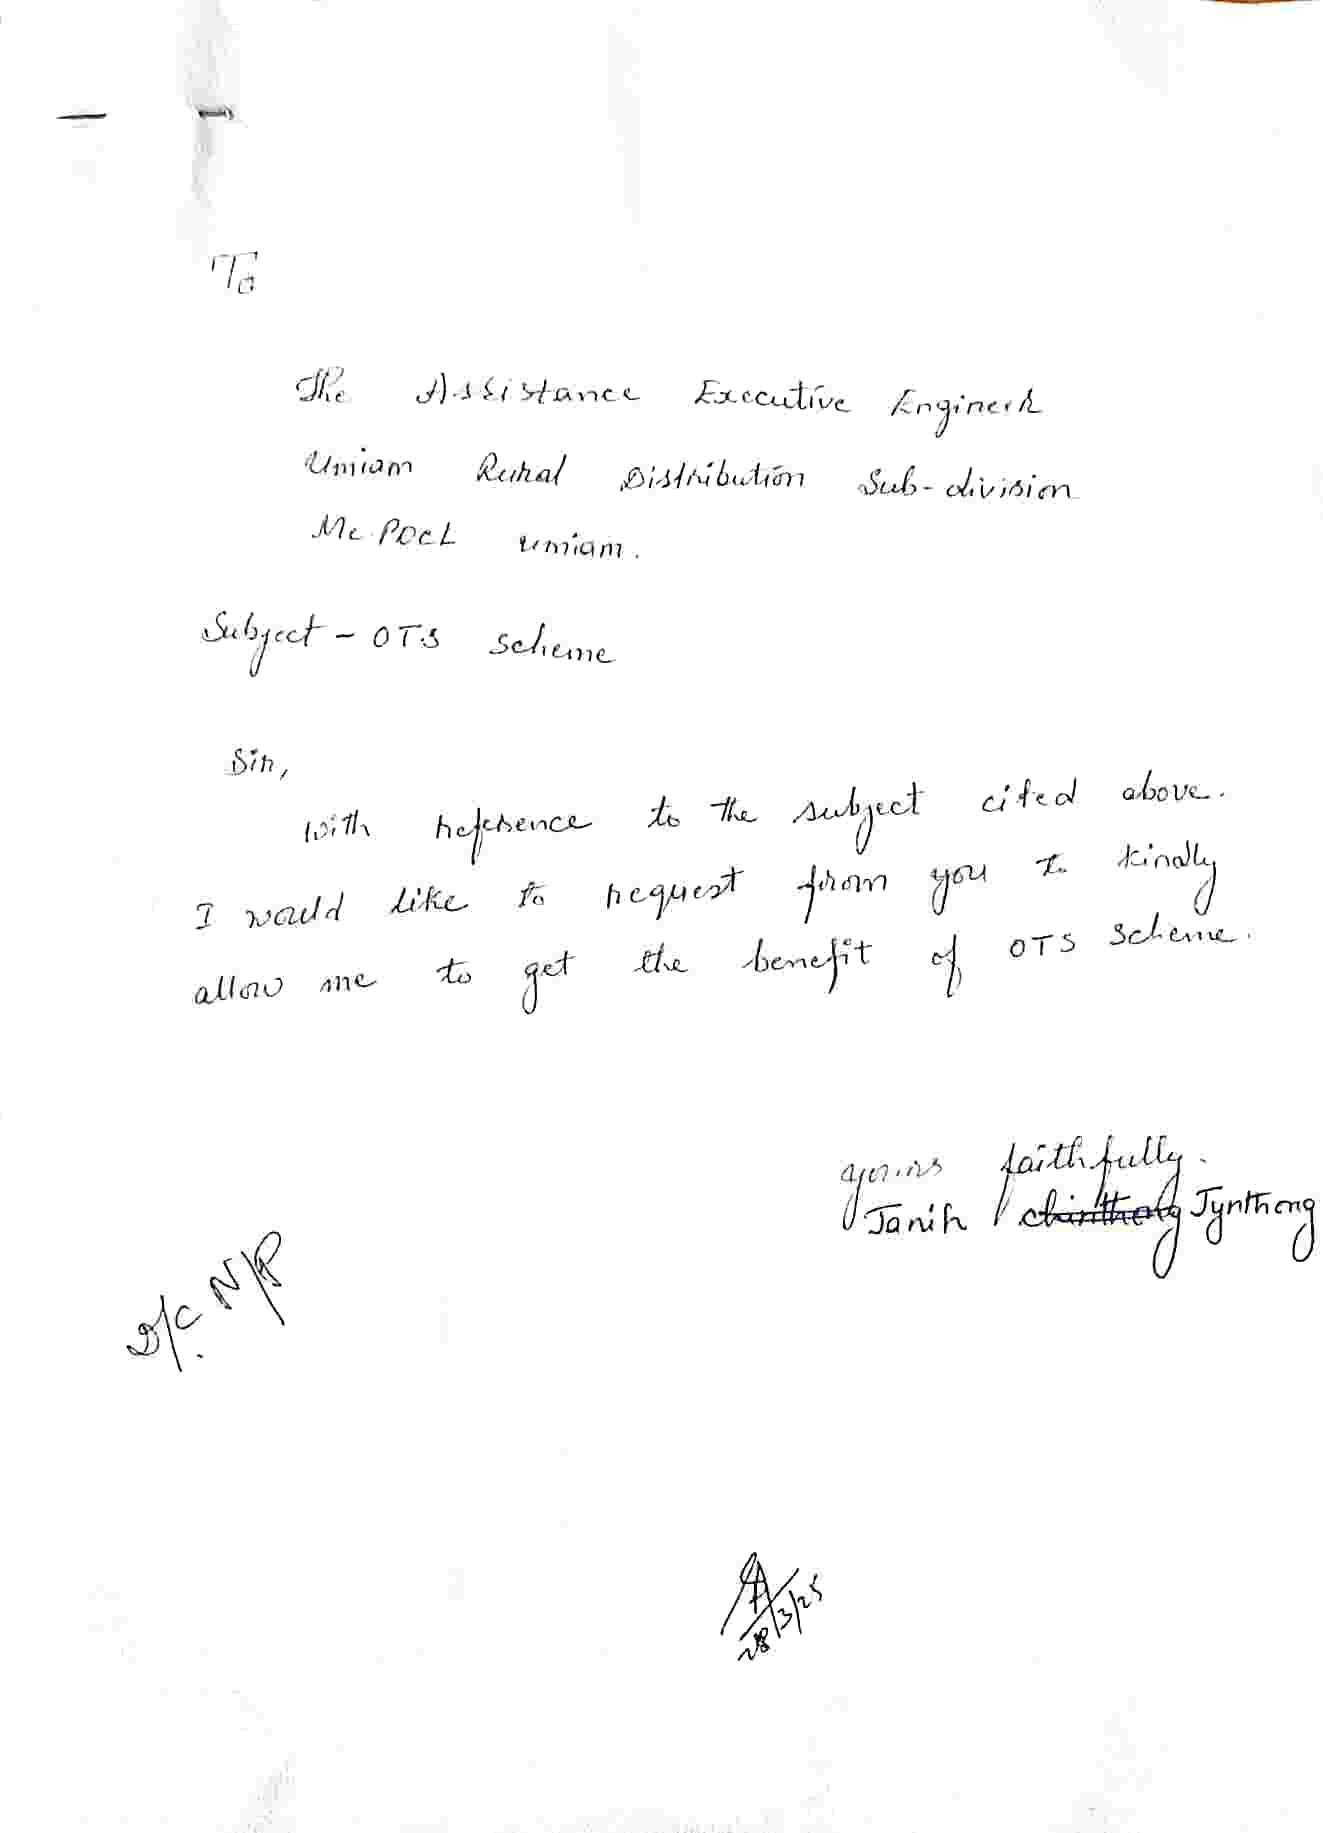 To
The Assistance Executive Engineer
Umiam Rural Distribution Sub-division
Me.PDCL umiam.
Subject - OTS scheme
Sir,
with reference to the subject cited above.
I would like to request from you to kindly
allow me to get the benefit of OTS scheme.
yours faithfully.
Janih Jynthong
D/C. N/P
28/3/25